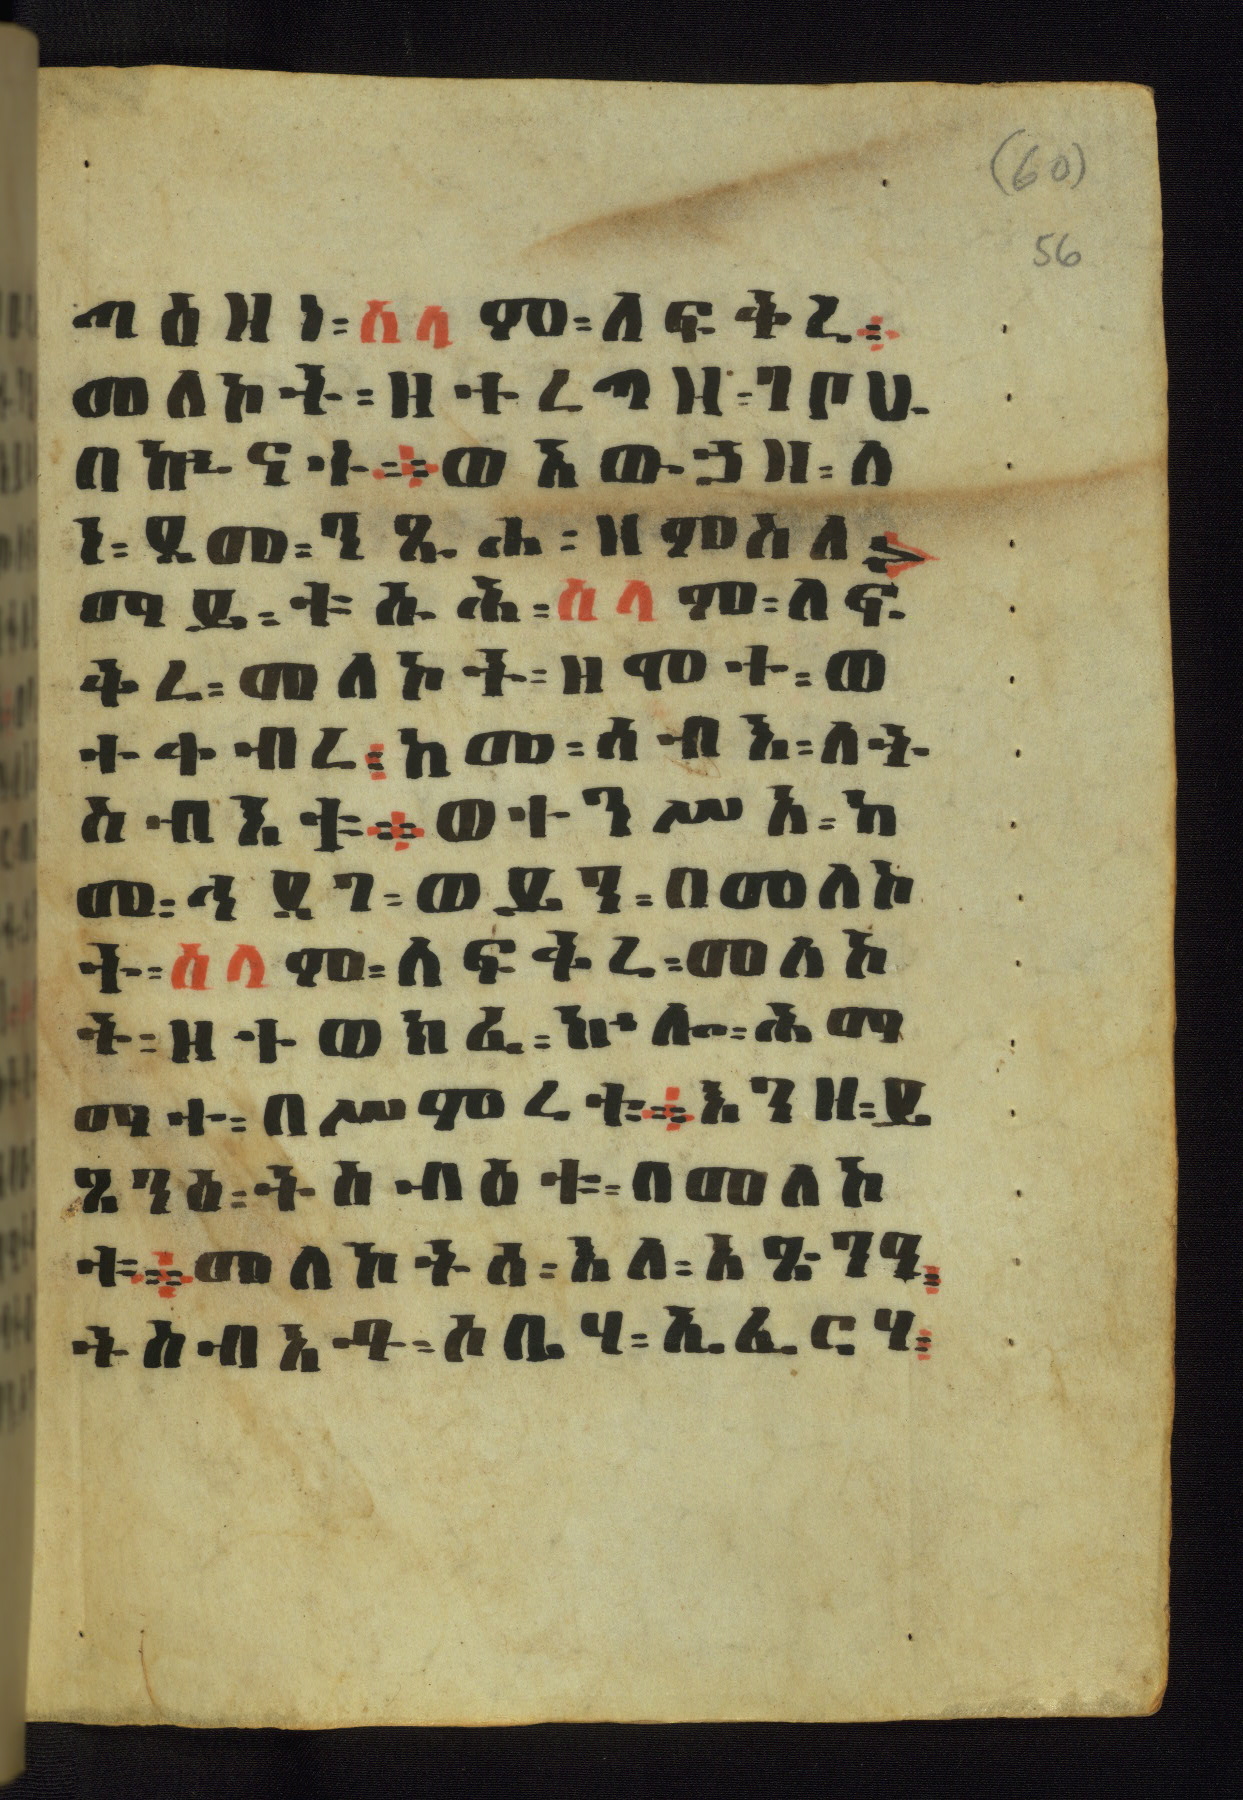 (60)
56
ጣዕዝነ፡ሰላም፡ለፍቅረ፡
መለኮት፡ዘተረጣዝ፡ገቦሁ
በኵናት።ወእውኃዘ፡ለ
ነ፡ደመ፡ንጺሐ፡ዘምስለ፡
ማይ፡ቱሱሕ፡ሰላም፡ለፍ
ቅረ፡መለኮት፡ዘሞተ፡ወ
ተቀብረ፡ከመ፡ሰብእ፡ለት
ስብእቱ።ወተንሥአ፡ከ
መ፡ኄር፡ወ
ት፡ሰላም፡ለፍቅረ፡መለኮ
ት፡ዘተወክፈ፡ኵሎ፡ሕማ
ማተ፡በሥምረቱ።እንዘ፡
ጸንዕ፡ትስብዕተ፡በመለኮ
ቱ።መለኮትሰ፡እለ፡አጽንዓ፡
ትስብእታ፡ሰቢሃ፡ኢፈርሃ፡